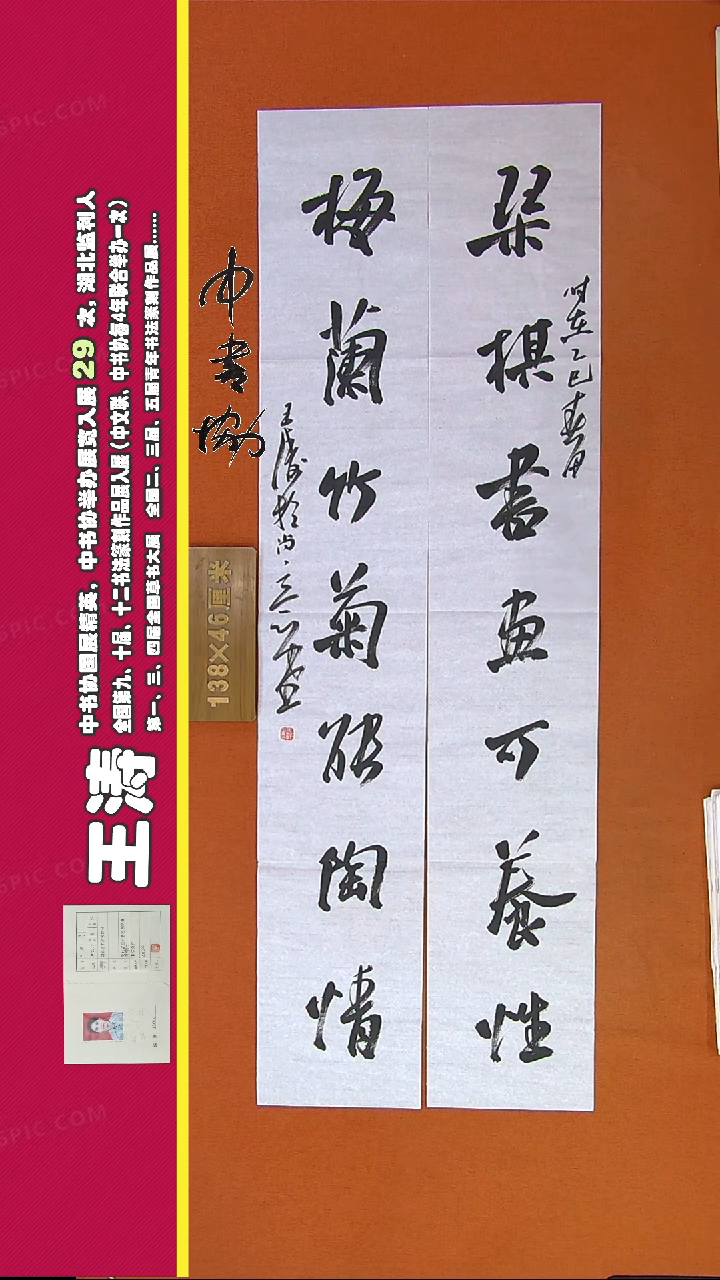 琴棋書画可養性
时在乙巳春月
梅蘭竹菊能陶情
王涛
中書協
138×46厘米
中书协国展精英，中书协举办展览入展29次，湖北监利人
全国第九、十届、十二书法篆刻作品展入展（中文联、中书协每4年联合举办一次）
第一、三、四届全国草书大展 全国二、三届、五届青年书法篆刻作品展......
王涛